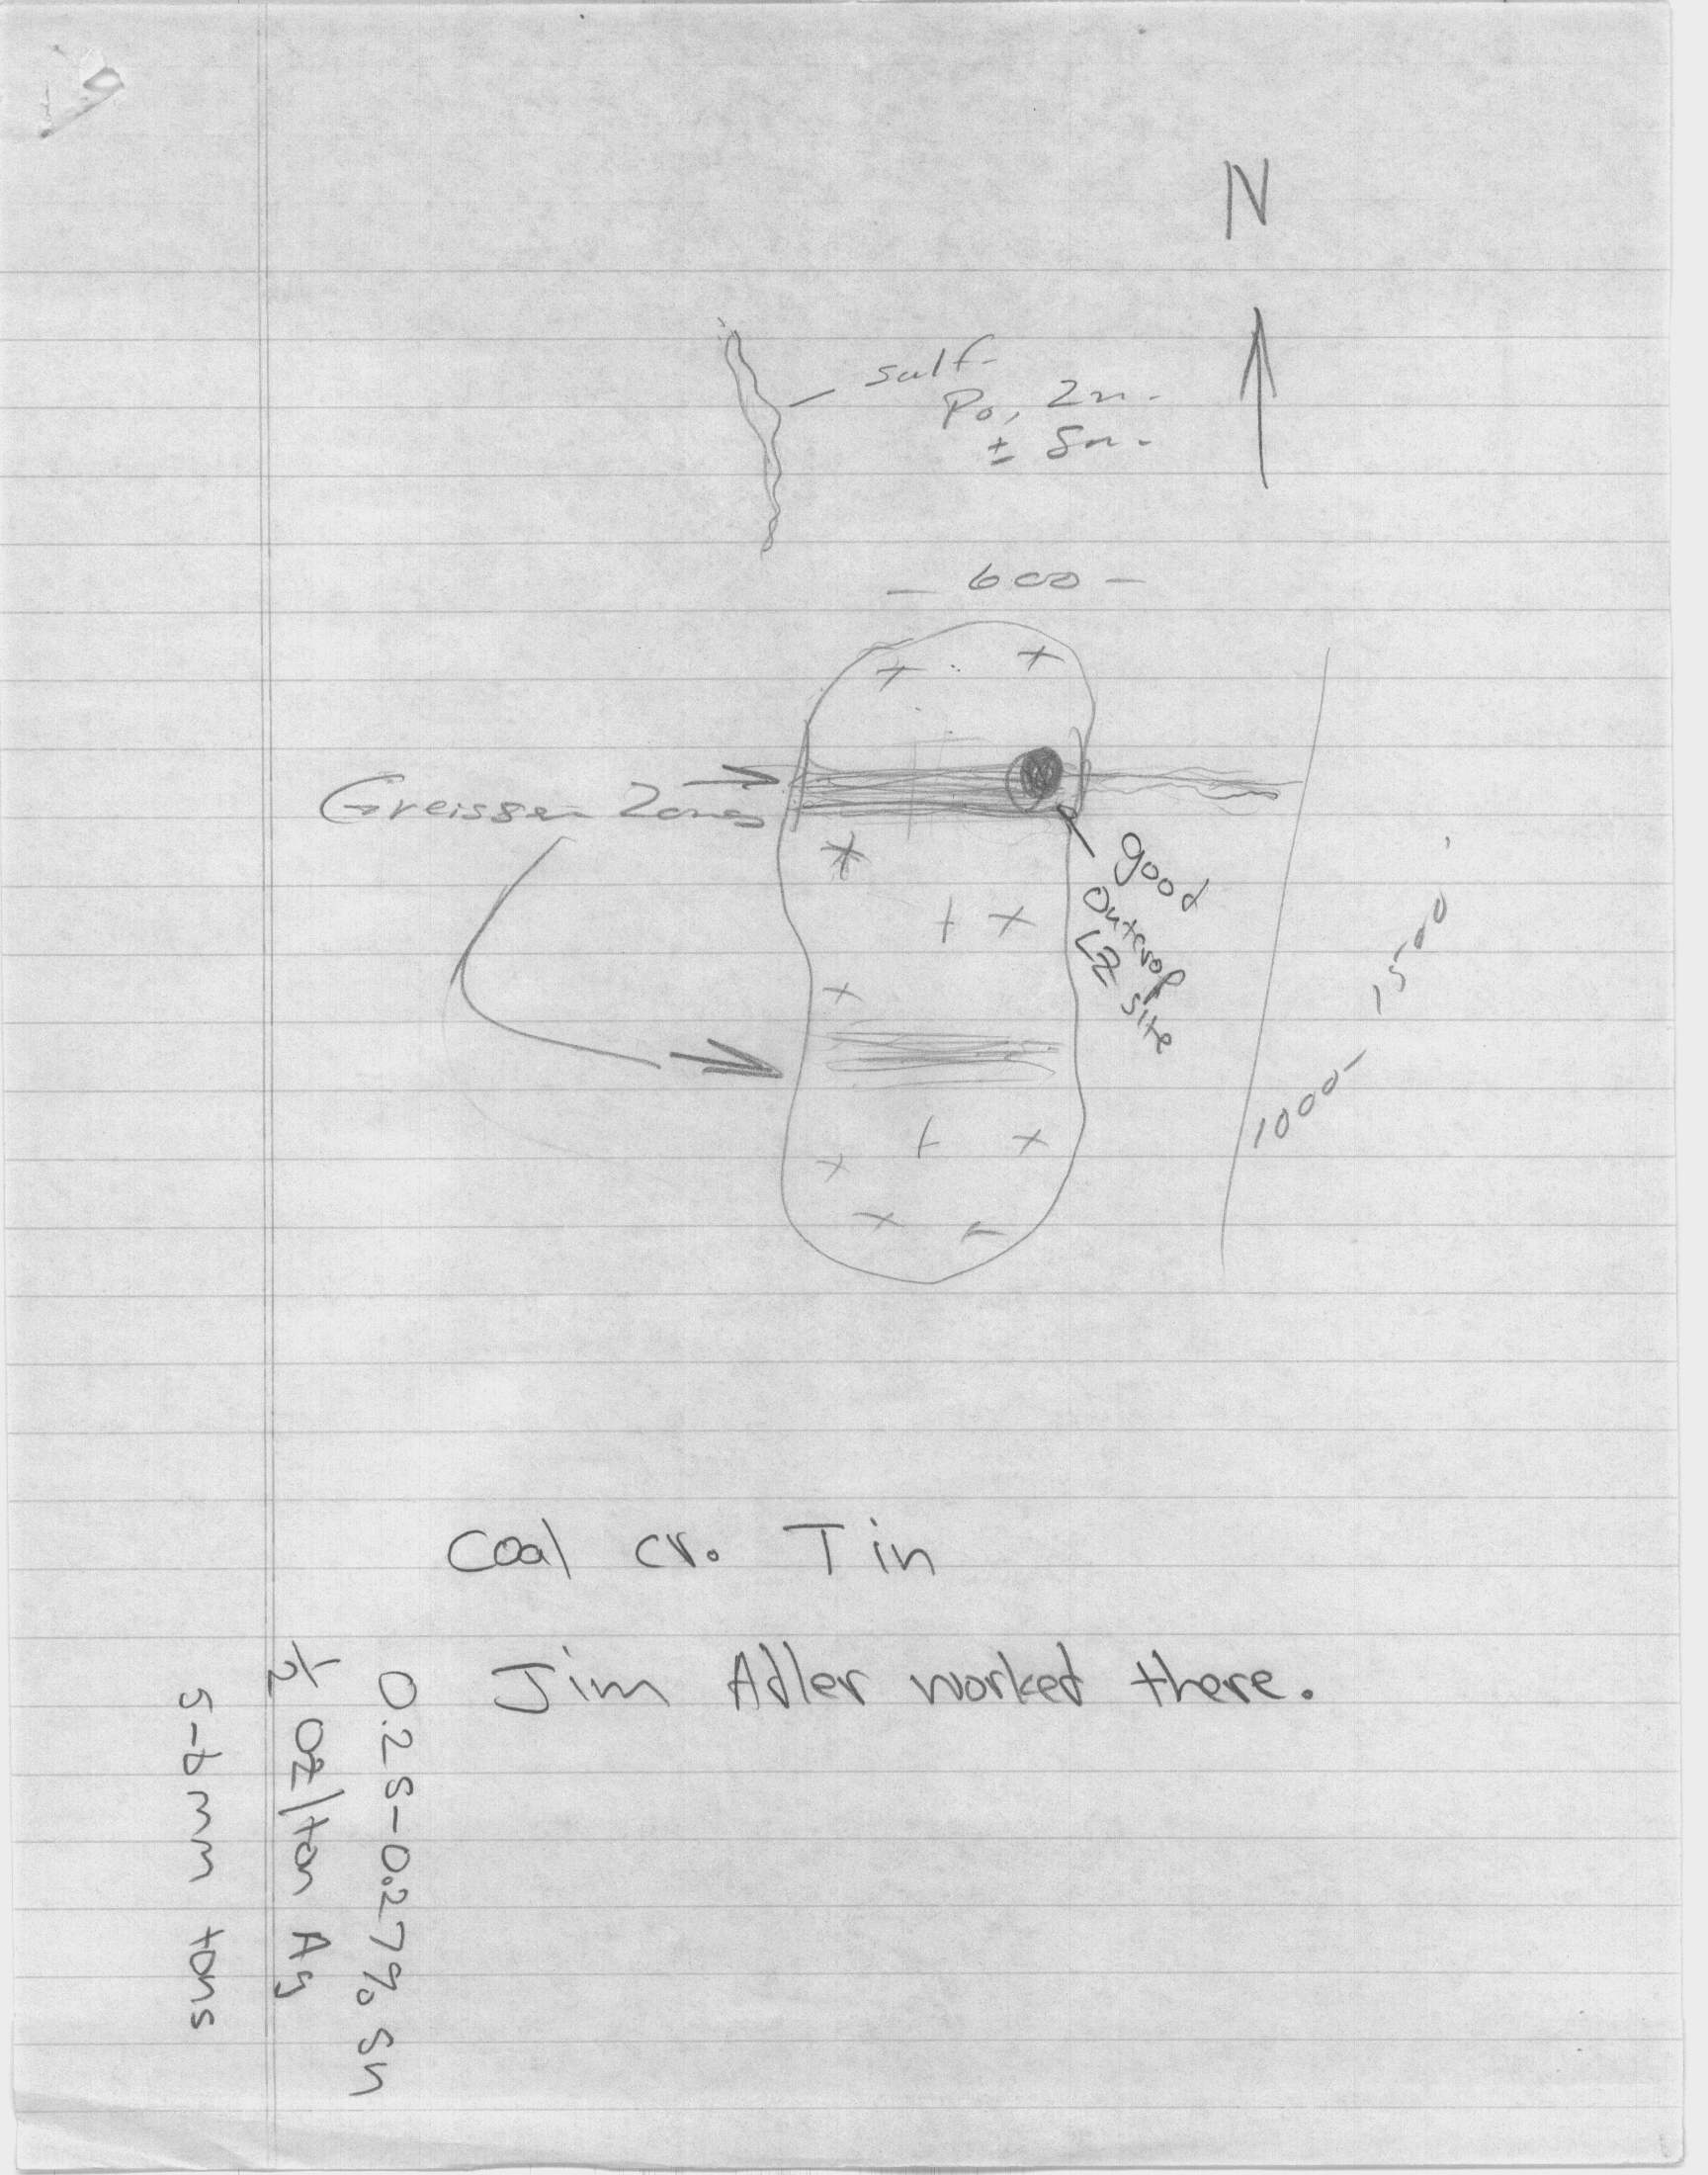 N
sulf.
Po, Zn.
± Sn.
- 600 -
Greissen Zones
good
outcrop
LZ site
1000 - 1500'
Coal cr. Tin
Jim Adler worked there.
0.25-0.27% Sn
1/2 oz/ton Ag
5-6 mm tons